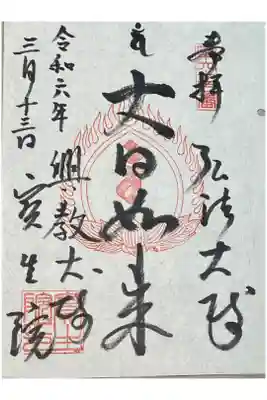 奉拝
弘法大师
大日如来
興教大师
宝生院
令和六年
三月十三日